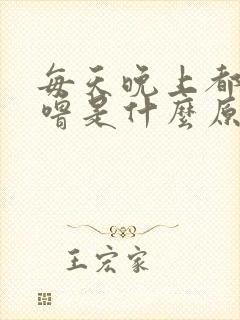 每天晚上都
嘈是什麼原
王宏家